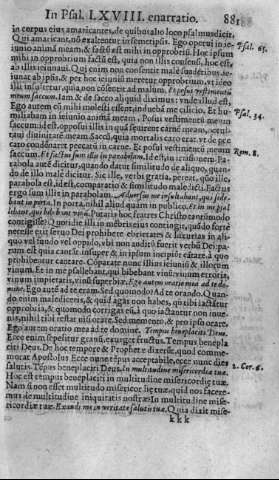 In Psal. LXVIII. enarratio. 881
in corpus eius amaricantes, de quibus talio loco psal. mus dicit,
Cum amaricant, no exaltentur in semetipsis. Ego operui in ie-
iunio animā meam, & factū est mihi in opprobriū. Hoc ipsum
mihi in opprobrium factū est, quia non illis consensi, hoc est,
ab illis ieiunaui. Qui enim non consentit male suadentibus, ie-
iunat ab ipsis, & per hoc ieiuniū meretur opprobrium, vt ideo
illi insultetur, quia non cōsentit ad malum. Et posui vestimentū
meum saccum. Iam & de sacco aliquid diximus vnde illud est,
Ego autem cū mihi molesti essent, induebā me cilicio, Et hu-
miliabam in ieiunio animā meam. Posui vestimentū meum
saccum, id est, opposui illis in quā seuirent carnē meam,
Saccū, quia mortalis caro erat, vt de pec-
cato condēnaret peccatū in carne. Et posui vestimentū meum
saccum. Et factus sum illis in parabolam, id est, in irrisionem. Pa-
rabola autē dicitur, quando datur similitudo de aliquo, quan-
do de illo male dicitur. Sic ille, verbi gratia, pereat, quō ille,
parabola est, id est, comparatio & similitudo maledicti. Factus
ergo sum illis in parabolam. Aduersum me insultabant, qui sede-
bant in porta. In porta, nihil aliud quam in publico. Et in me psal-
lebant, qui bibebant vinū. Putatis hoc fratres Christo tantūmodo
contigisse? Quotidie illi in mēbris eius contingit, quando forte
necesse erit seruo Dei prohibere ebrietates & luxurias in ali-
quo vel fundo vel oppido, vbi non auditū fuerit verbū Dei: pa-
rum est quia cantāt, insuper & in ipsum incipiūt cātare, à quo
prohibentur cantare. Cōparate nunc illius ieiuniū & illorum
vinum. Et in me psallebant, qui bibebant vinū: vinum erroris,
vinum impietatis, vinū superbiæ. Ego autem oratione mea ad te do-
mine. Ego autē ad te eram. Sed quomodo? Ad te orando. Quan-
do enim malediceris, & quid agas non habes, quādo tibi iactātur
opprobria, & quomodo corrigas eū, à quo iactātur non inue-
nis, nihil tibi restat nisi orare. Sed memento, & pro ipso orare.
Ego autem oratio mea ad te domine. Tempus beneplaciti Deus.
Ecce enim sepelitur granū, exurget fructus. Tempus benepla-
citi Deus. De hoc tempore & Prophetæ dixerūt, quod comme-
morat Apostolus: Ecce nunc tēpus acceptabile, ecce nunc dies
salutis. Tēpus beneplaciti Deus. In multitudine misericordiæ tuæ.
Hoc est tempus beneplaciti in multitudine misericordiæ tuæ.
Nam si non esset multitudo misericordiæ tuæ, quid nos facere-
mus de multitudine iniquitatis nostræ? In multitudine mise-
ricordiæ tuæ. Exaudi me in veritate salutis tuæ. Quia dixit mise-
kkk
Psal. 65.
Psal. 34.
Rom. 8.
2. Cor. 6.